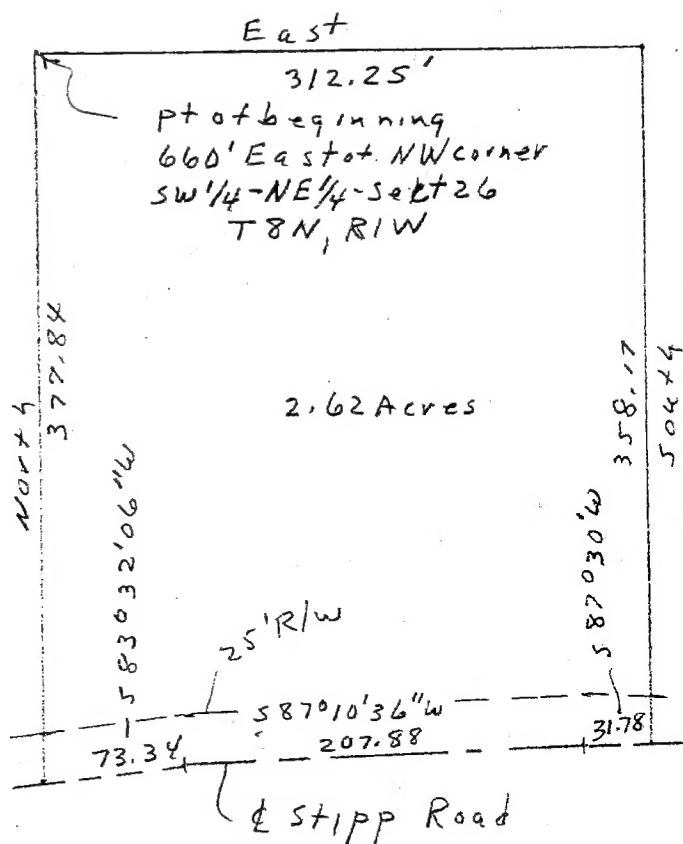 East
312.25'
pt of beginning
660' East of NW corner
SW 1/4-NE 1/4-Sect 26
T8N, R1W
North
377.84
2.62 Acres
358.17
South
S83°32'06"W
S87°30'W
25'R/W
S87°10'36"W
73.34
207.88
31.78
℄ Stipp Road